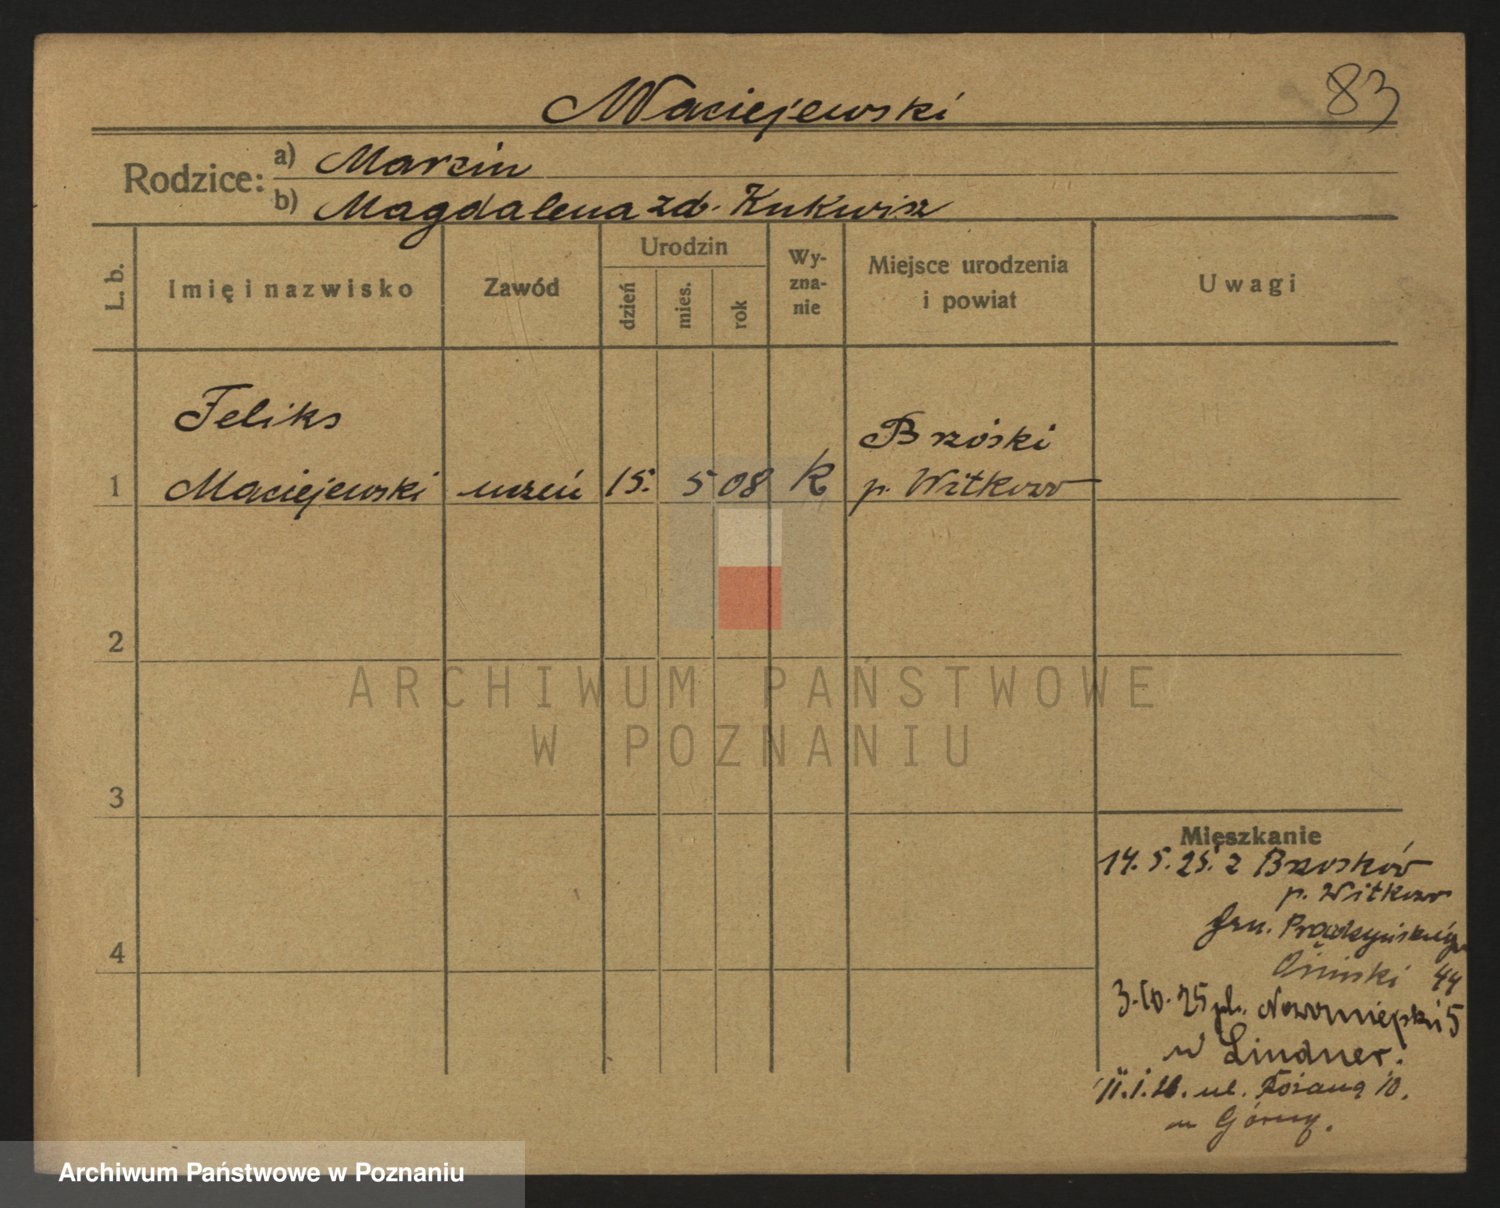 83
Maciejewski
Rodzice: a) Marcin
b) Magdalena zd. Kukwisz
L. b.
Imię i nazwisko
Zawód
Urodzin
dzień
mies.
rok
Wy-
zna-
nie
Miejsce urodzenia
i powiat
Uwagi
Feliks
Brzóski
1 Maciejewski uczeń 15. 5 08 k p. Witkowo
2
3
4
Mieszkanie
14. 5. 25. z Brzosków
p. Witkowo
Gen. Prądzyńskiego
44
3.10.25 pl. Nowomiejski 5
u Lindner.
11.1.26. ul. 10.
u Górny.
ARCHIWUM PAŃSTWOWE
W POZNANIU
Archiwum Państwowe w Poznaniu